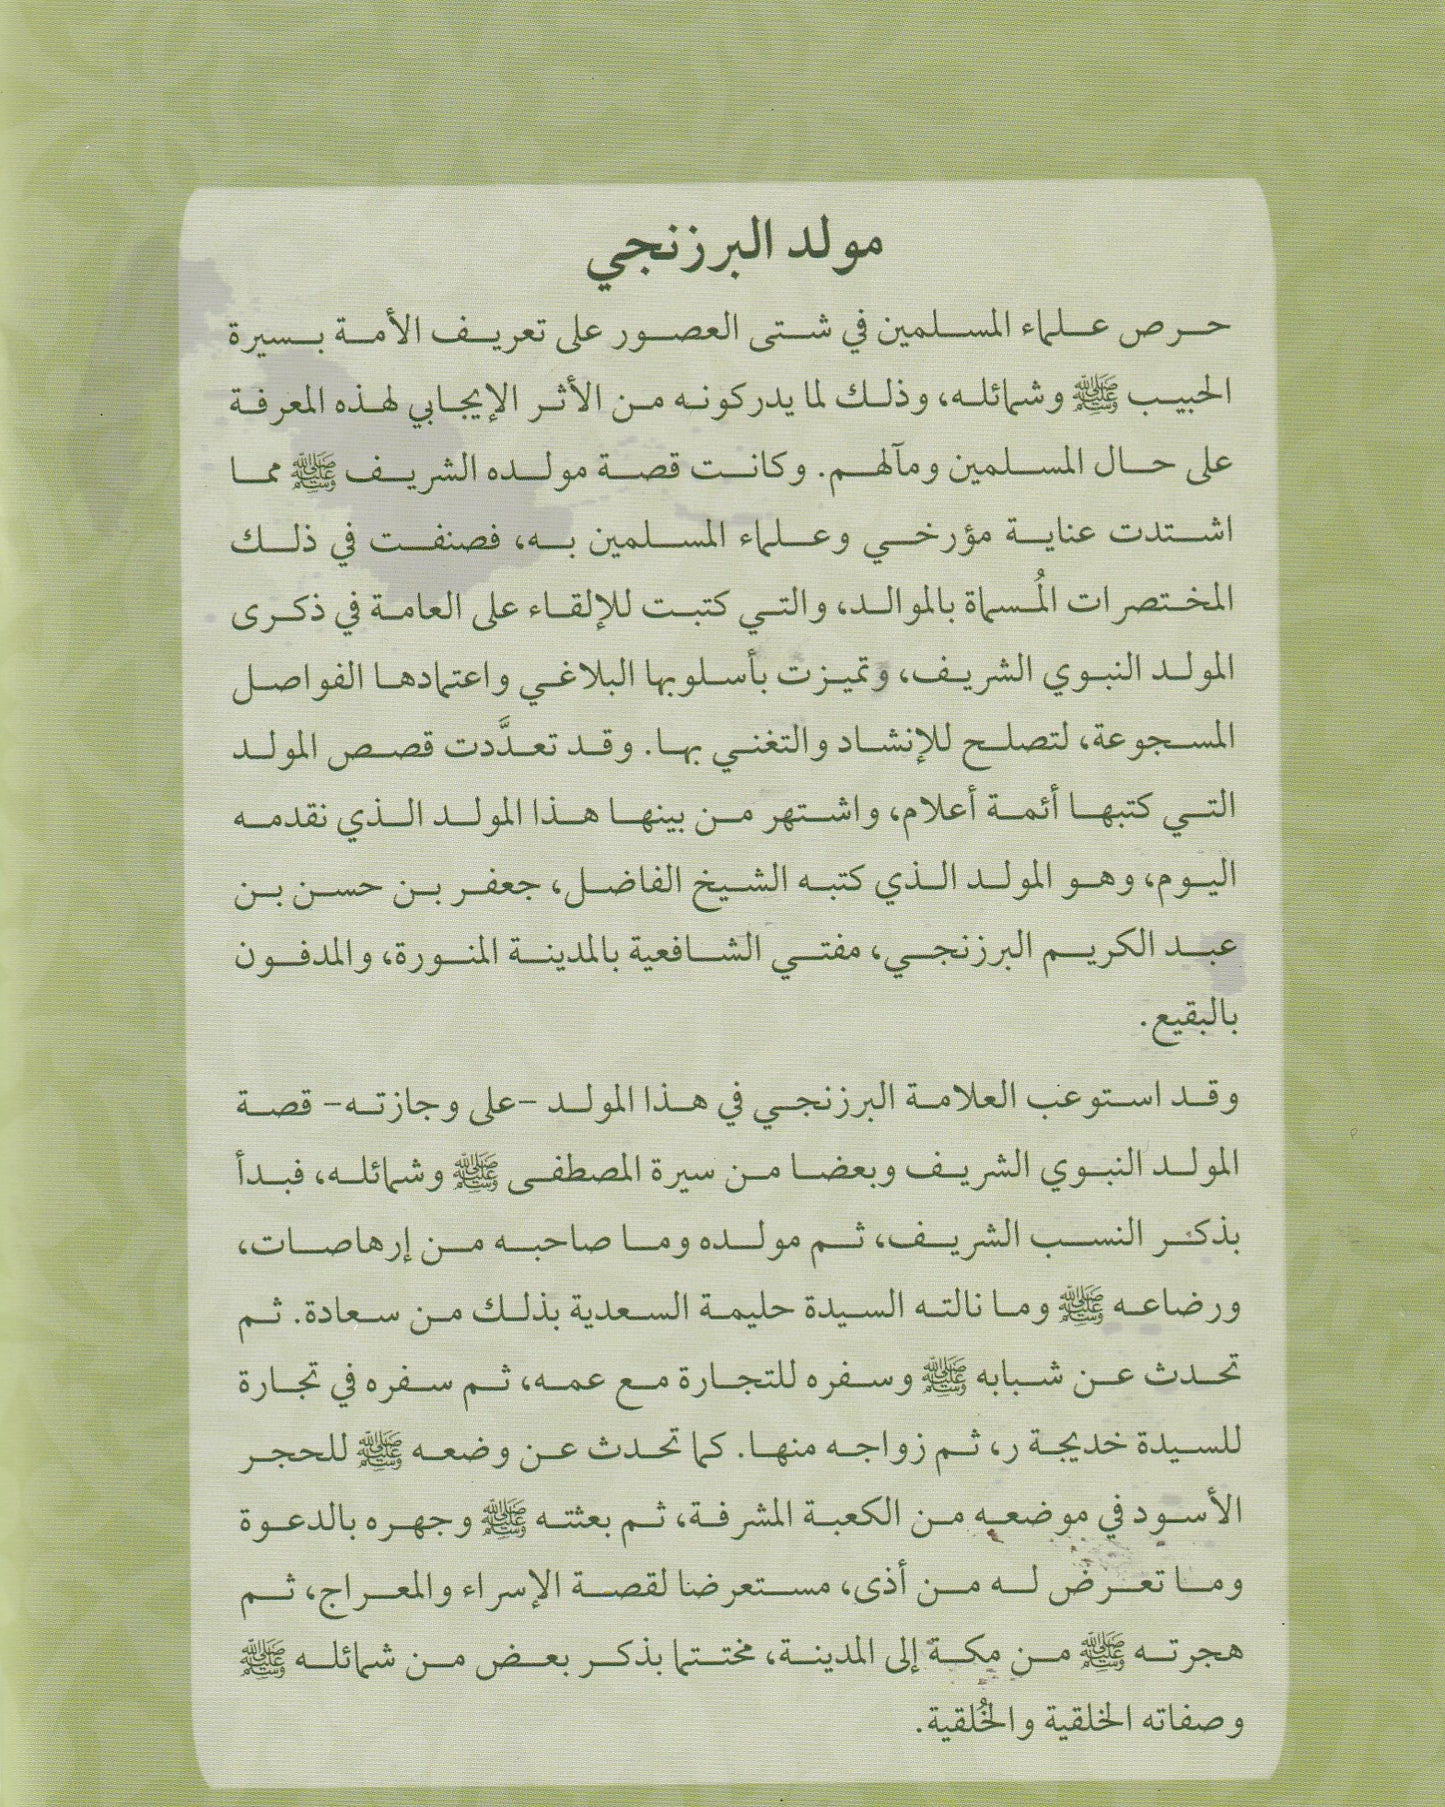 مولد البرزنجي
حرص علماء المسلمين في شتى العصور على تعريف الأمة بسيرة
الحبيب ﷺ وشمائله، وذلك لما يدركونه من الأثر الإيجابي لهذه المعرفة
على حال المسلمين ومآلهم. وكانت قصة مولده الشريف ﷺ مما
اشتدت عناية مؤرخي وعلماء المسلمين به، فصنفت في ذلك
المختصرات المُسماة بالموالد، والتي كتبت للإلقاء على العامة في ذكرى
المولد النبوي الشريف، وتميزت بأسلوبها البلاغي واعتمادها الفواصل
المسجوعة، لتصلح للإنشاد والتغني بها. وقد تعدَّدت قصص المولد
التي كتبها أئمة أعلام، واشتهر من بينها هذا المولد الذي نقدمه
اليوم، وهو المولد الذي كتبه الشيخ الفاضل، جعفر بن حسن بن
عبد الكريم البرزنجي، مفتي الشافعية بالمدينة المنورة، والمدفون
بالبقيع.
وقد استوعب العلامة البرزنجي في هذا المولد -على وجازته- قصة
المولد النبوي الشريف وبعضا من سيرة المصطفى ﷺ وشمائله، فبدأ
بذكر النسب الشريف، ثم مولده وما صاحبه من إرهاصات،
ورضاعه ﷺ وما نالته السيدة حليمة السعدية بذلك من سعادة. ثم
تحدث عن شبابه ﷺ وسفره للتجارة مع عمه، ثم سفره في تجارة
للسيدة خديجة ر، ثم زواجه منها. كما تحدث عن وضعه ﷺ للحجر
الأسود في موضعه من الكعبة المشرفة، ثم بعثته ﷺ وجهره بالدعوة
وما تعرض له من أذى، مستعرضا لقصة الإسراء والمعراج، ثم
هجرته ﷺ من مكة إلى المدينة، مختتما بذكر بعض من شمائله ﷺ
وصفاته الخلقية والخُلقية.